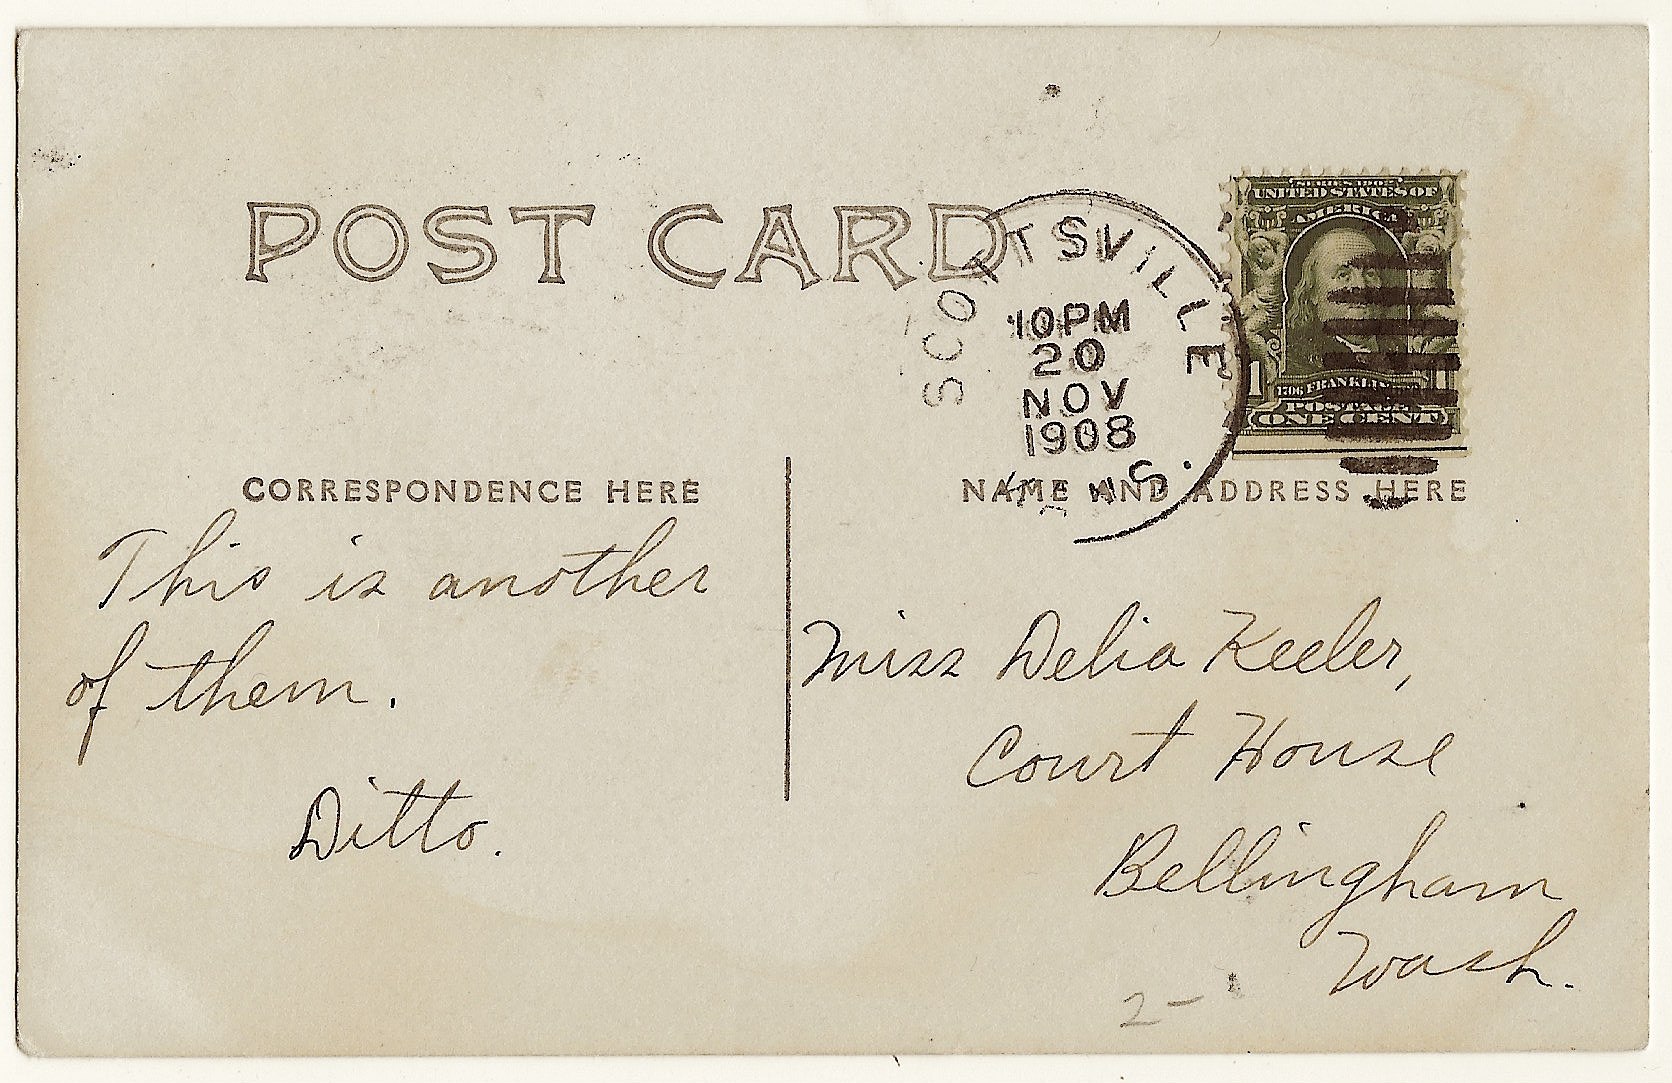 POST CARD
SCOTTSVILLE
10PM
20
NOV
1908
SERIES 1902
UNITED STATES OF
AMERICA
1 1
1706 FRANKLIN
POSTAGE
ONE CENT
CORRESPONDENCE HERE
NAME AND ADDRESS HERE
This is another
of them.
Ditto.
Miss Delia Keeler,
Court House
Bellingham
Wash.
2-